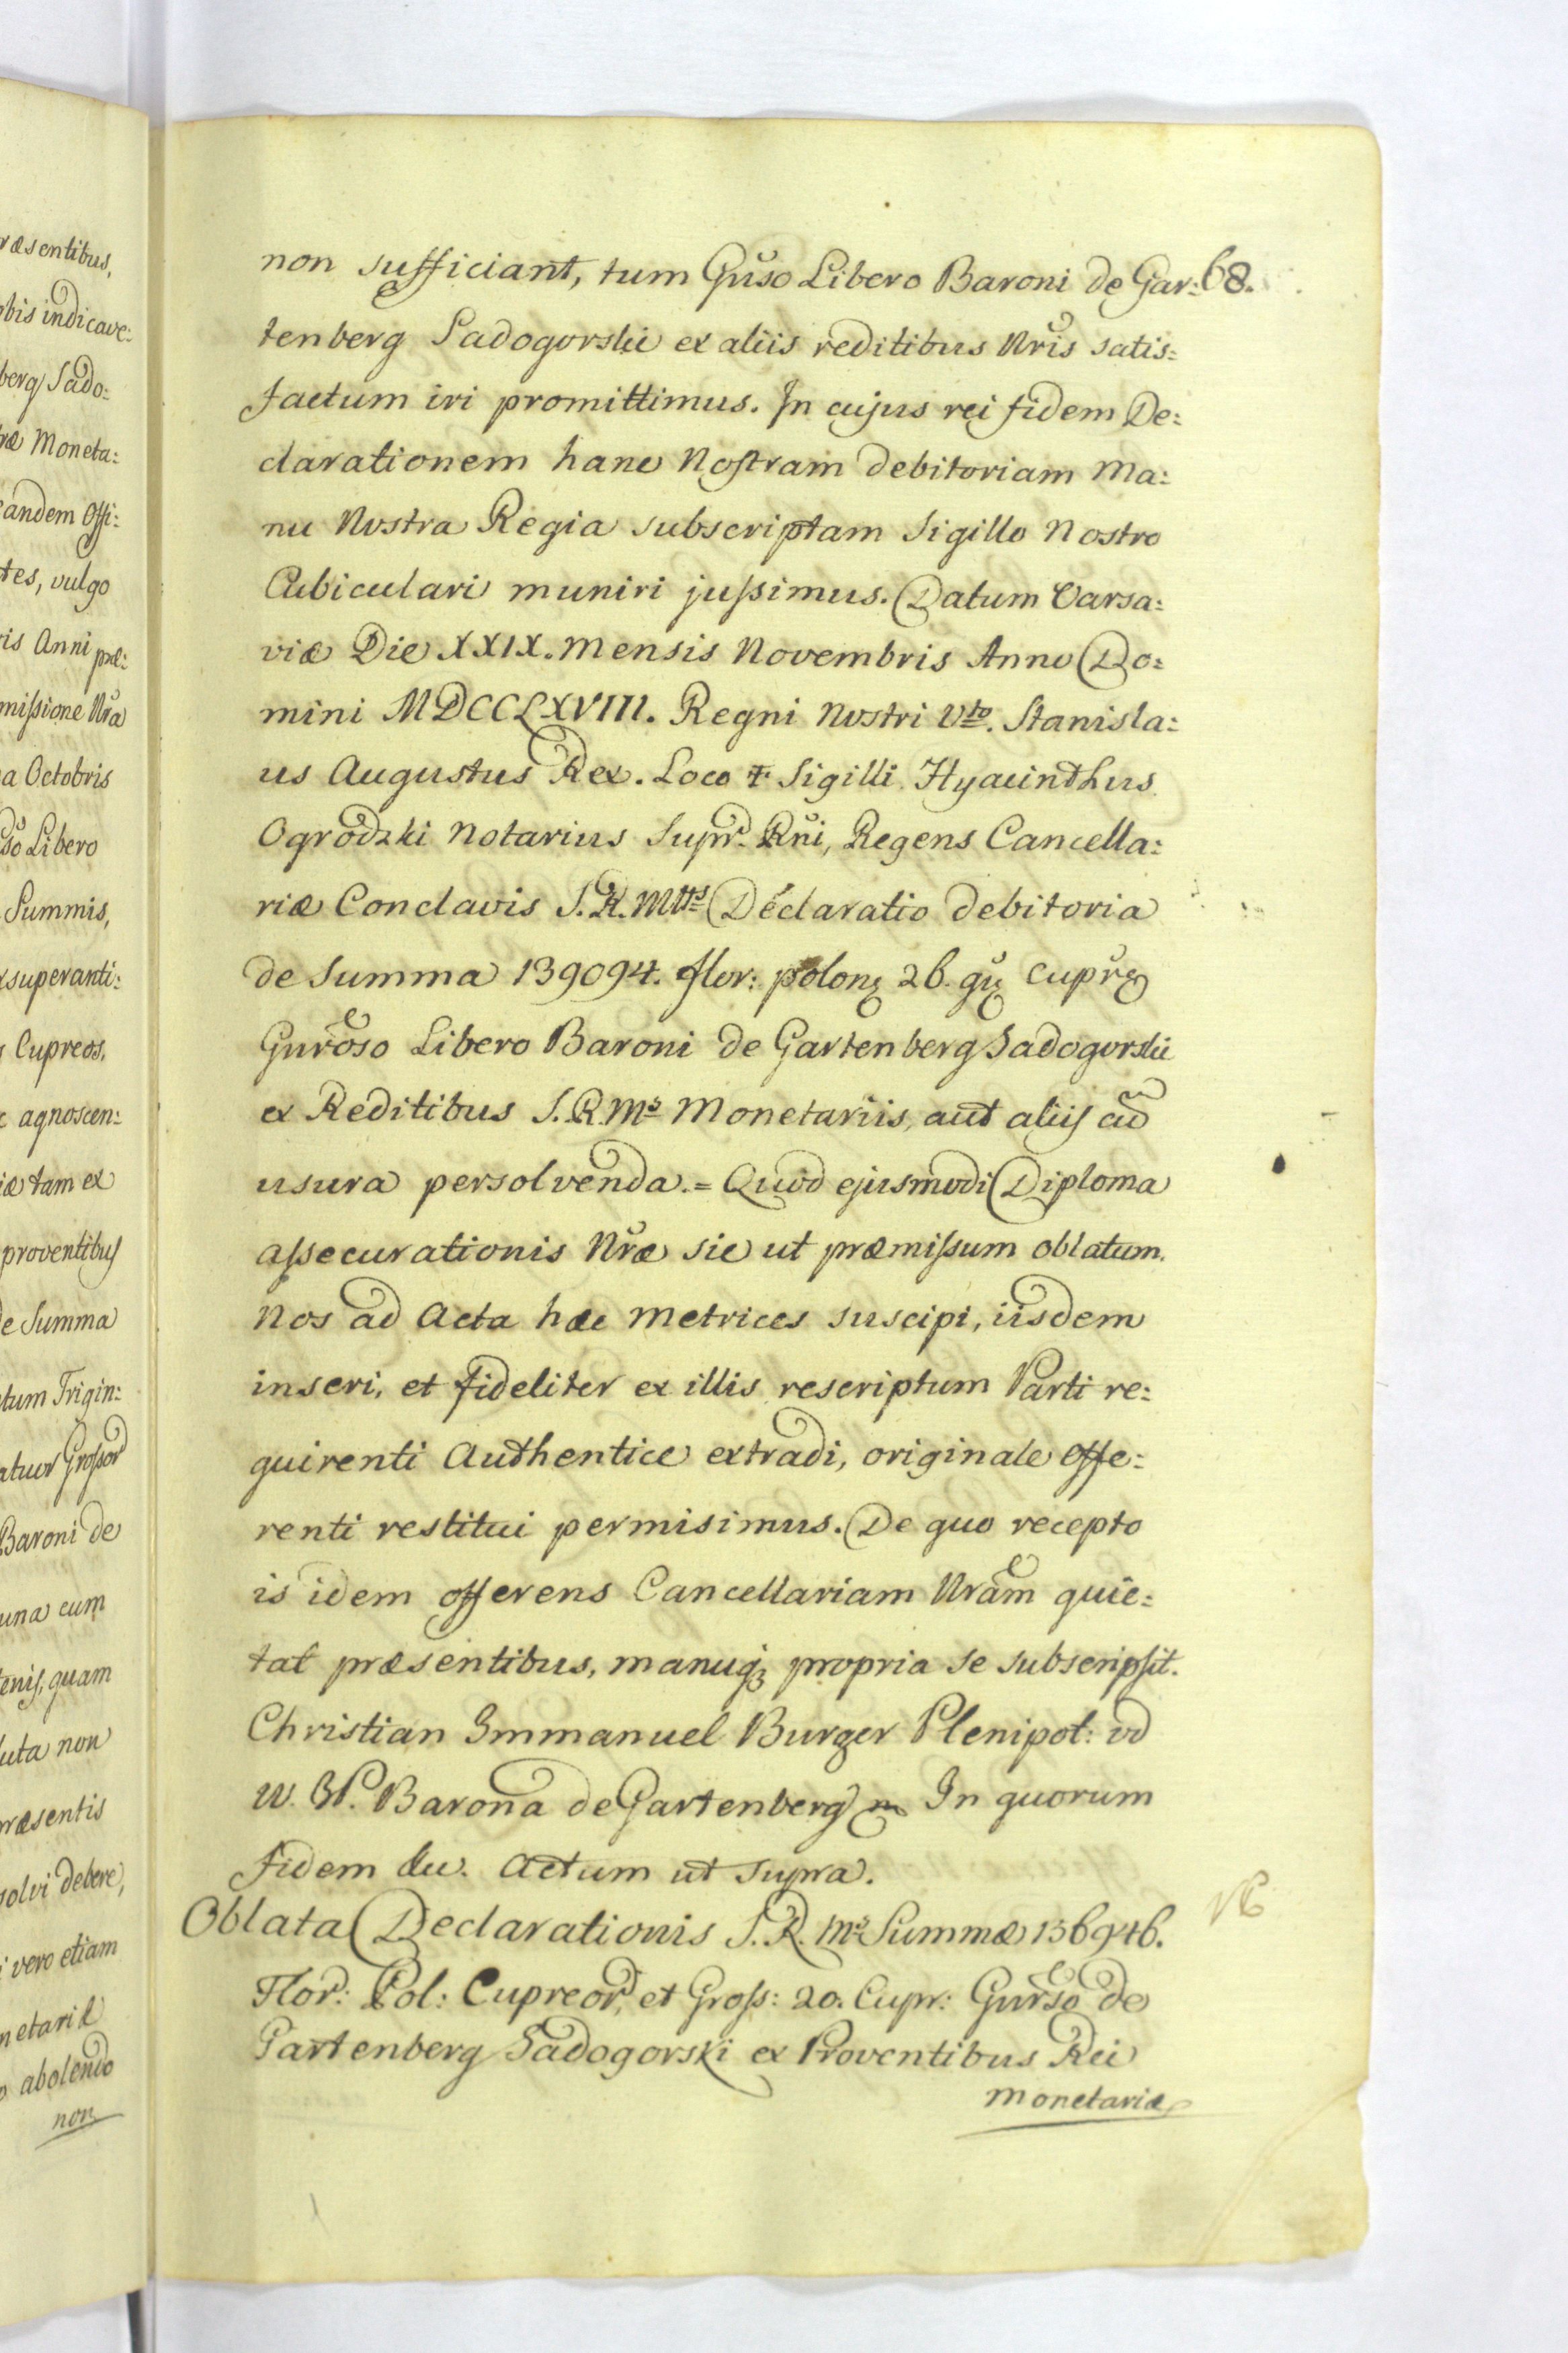 ræsentibus,
obis indicave:
berg Sado:
træ Moneta:
eandem Offi:
tes, vulgo
ris Anni præ:
missione Nra
a Octobris
so Libero
Summis,
xsuperanti:
Cupreos,
agnoscen:
iæ tam ex
proventibus
de Summa
tum Trigin:
atuor Grossor
Baroni de
una cum
tenis, quam
luta non
præsentis
solvi debere,
i vero etiam
netariæ
abolendo
non
68.
non sufficiant, tum Gnso Libero Baroni de Gar:
tenberg Sadogorski ex aliis reditibus Nris satis:
factum iri promittimus. In cujus rei fidem De:
clarationem hanc Nostram debitoriam Ma:
nu Nostra Regia subscriptam Sigillo Nostro
Cubiculari muniri jussimus. Datum Varsa:
viæ Die XXIX. Mensis Novembris Anno Do:
mini MDCCLXVIII. Regni Nostri Vto. Stanisla:
us Augustus Rex. Loco + Sigilli. Hyacinthus
Ogrodzki Notarius Supr. Rni, Regens Cancella:
riæ Conclavis S. R. Mttis Declaratio debitoria
de Summa 139094. flor: polon 26. gr cupr
Gnroso Libero Baroni de Gartenberg Sadogorski
ex Reditibus S. R. Ms Monetariis, aut aliis cu
usura persolvenda. = Quod ejusmodi Diploma
assecurationis Nræ sic ut præmissum oblatum.
Nos ad Acta hæc Metrices suscipi, iisdem
inseri, et fideliter ex illis rescriptum Parti re:
quirenti Authentice extradi, originale offe:
renti restitui permisimus. De quo recepto
is idem offerens Cancellariam Nram quie:
tat præsentibus, manuq propria se subscripsit.
Christian Immanuel Burger Plenipot: od
W. JP. Barona de Gartenberg In quorum
fidem &c. Actum ut supra.
Oblata Declarationis S. R. Ms Summæ 136946.
Flor: Pol: Cupreor, et Gross: 20. Cupr: Gnrso de
Gartenberg Sadogorski ex Proventibus Rei
Monetariæ